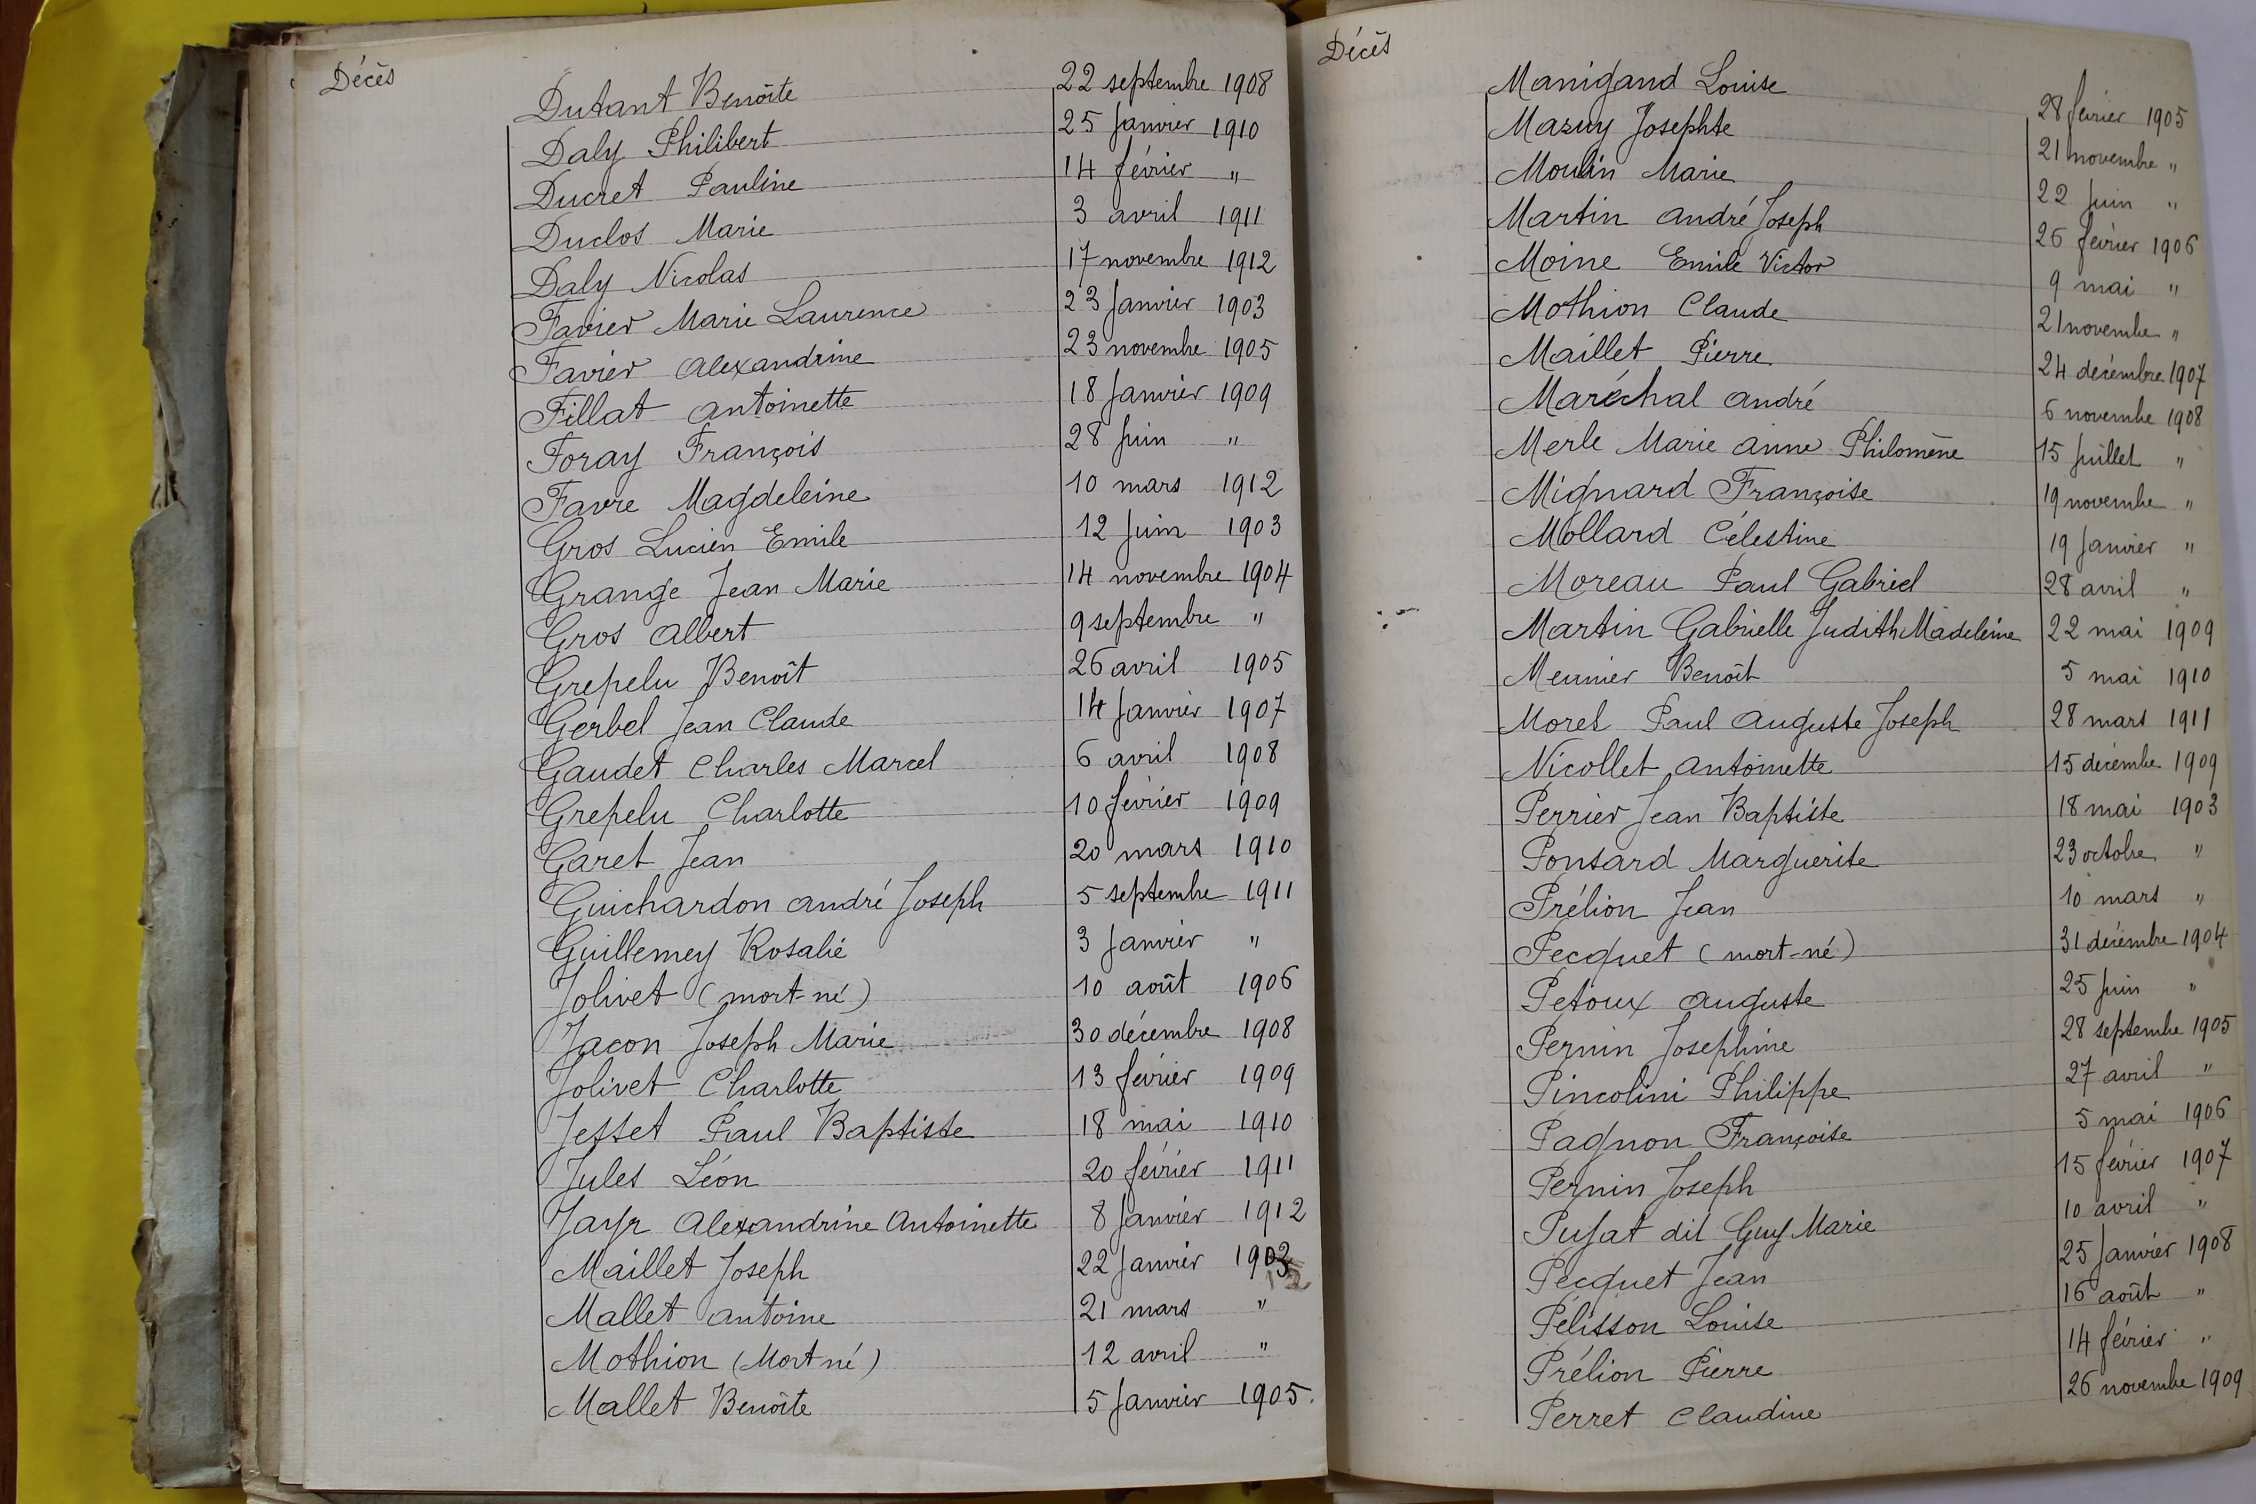 Décès
Dutant Benoîte 22 septembre 1908
Daly Philibert 25 Janvier 1910
Ducret Pauline 14 février "
Duclos Marie 3 avril 1911
Daly Nicolas 17 novembre 1912
Favier Marie Laurence 23 Janvier 1903
Favier Alexandrine 23 novembre 1905
Fillat Antoinette 18 Janvier 1909
Foray François 28 Juin "
Favre Magdeleine 10 mars 1912
Gros Lucien Emile 12 Juin 1903
Grange Jean Marie 14 novembre 1904
Gros Albert 9 septembre "
Grepelu Benoît 26 avril 1905
Gerbel Jean Claude 14 Janvier 1907
Gaudet Charles Marcel 6 avril 1908
Grepelu Charlotte 10 février 1909
Garet Jean 20 mars 1910
Guichardon André Joseph 5 septembre 1911
Guillemey Rosalie 3 Janvier "
Jolivet (mort-né) 10 août 1906
Jacon Joseph Marie 30 décembre 1908
Jolivet Charlotte 13 février 1909
Jesset Paul Baptiste 18 mai 1910
Jules Léon 20 février 1911
Jayr Alexandrine Antoinette 8 Janvier 1912
Maillet Joseph 22 Janvier 1903
Mallet Antoine 21 mars "
Mothion (Mort né) 12 avril "
Mallet Benoîte 5 Janvier 1905.
Décès
Manigand Louise 28 février 1905
Mazuy Josephte 21 novembre "
Moulin Marie 22 Juin "
Martin André Joseph 26 février 1906
Moine Emile Victor 9 mai "
Mothion Claude 21 novembre "
Maillet Pierre 24 décembre 1907
Maréchal André 6 novembre 1908
Merle Marie Anne Philomène 15 Juillet "
Mignard Françoise 19 novembre "
Mollard Célestine 19 Janvier "
Moreau Paul Gabriel 28 avril "
Martin Gabrielle Judith Madeleine 22 mai 1909
Meunier Benoît 5 mai 1910
Morel Paul Auguste Joseph 28 mars 1911
Nicollet Antoinette 15 décembre 1909
Perrier Jean Baptiste 18 mai 1903
Ponsard Marguerite 23 octobre "
Prélion Jean 10 mars "
Pecquet (mort-né) 31 décembre 1904
Petoux Auguste 25 Juin "
Pernin Josephine 28 septembre 1905
Pincolini Philippe 27 avril "
Pagnon Françoise 5 mai 1906
Pernin Joseph 15 février 1907
Pujat dit Guy Marie 10 avril "
Pecquet Jean 25 Janvier 1908
Pélisson Louise 16 août "
Prélion Pierre 14 février "
Perret Claudine 26 novembre 1909